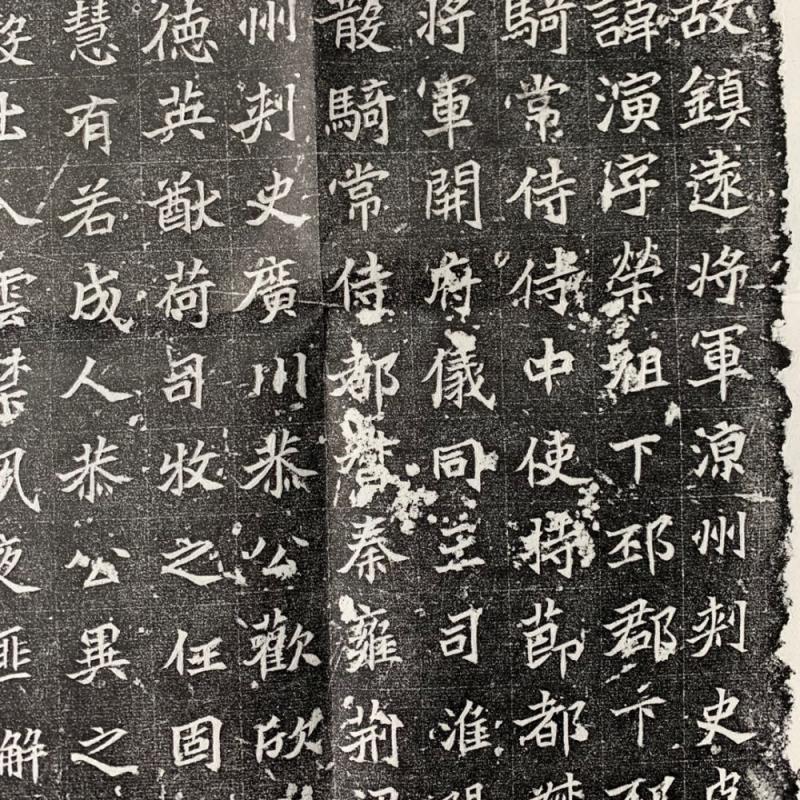 故鎮遠將軍涼州刺史皮
諱演字榮祖下邳郡下邳
騎常侍侍中使持節都
將軍開府儀同三司淮
散騎常侍都督秦雍荊
州刺史廣川恭公歡欣
德英猷荷司牧之任固
慧有若成人恭公異之
出入雲禁夙夜匪解